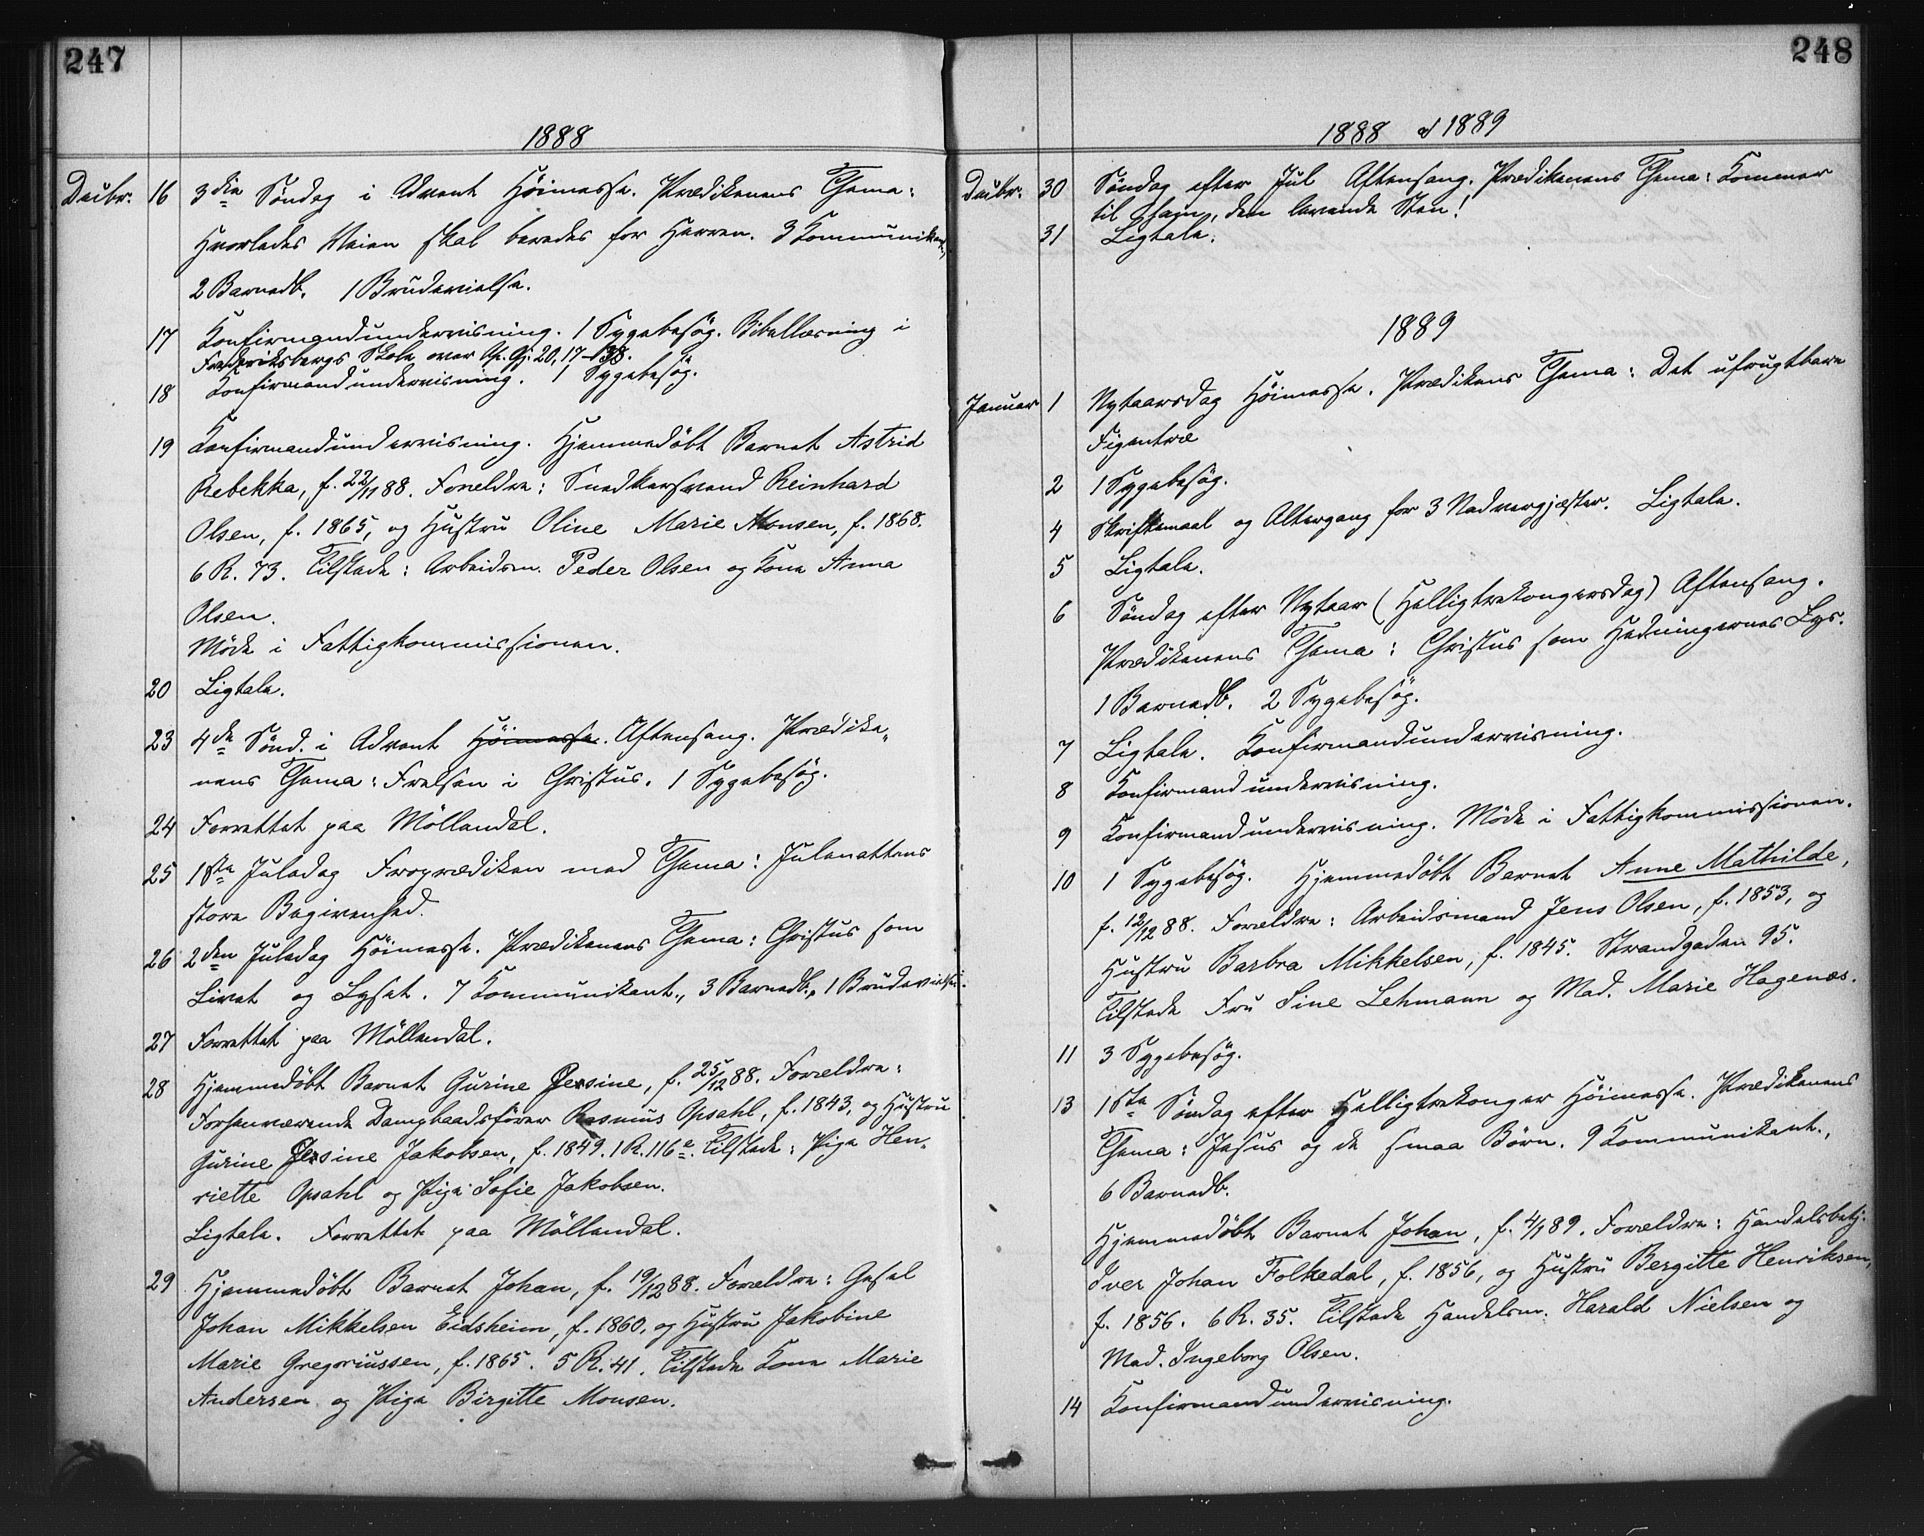 247
1888
Decbr. 16 3die Söndag i Advent Höimesse. Prædikenens Thema:
Hvorledes Veien skal beredes for Herren. 3 Kommunikant.,
2 Barnedb. 1 Brudevielse.
17 Konfirmandundervisning. 1 Sygebesög. Bibellæsning i
Frederiksbergs Skole over Ap. Gj. 20, 17-38.
18 Konfirmandundervisning. 1 Sygebesög.
19 Konfirmandundervisning. Hjemmedöbt Barnet Astrid
Rebekka, f. 22/11 88. Foreldre: Snedkersvend Reinhard
Olsen, f. 1865, og Hustru Oline Marie Monsen, f. 1868.
6 R. 73. Tilstede: Arbeidsm. Peder Olsen og Kone Anna
Olsen.
Möde i Fattigkommissionen.
20 Ligtale.
23 4de Sönd. i Advent Höimesse. Aftensang. Prædike„
nens Thema: Frelsen i Christus. 1 Sygebesög.
24 Forrettet paa Möllendal.
25 1ste Juledag Froprædiken med Thema: Julenattens
store Begivenhed.
26 2den Juledag Höimesse. Prædikenens Thema: Christus som
Livet og Lyset. 7 Kommunikant., 3 Barnedb., 1 Brudevielse.
27 Forrettet paa Möllendal.
28 Hjemmedöbt Barnet Gurine Gersine, f. 25/12 88. Forældre:
Forhenværende Dampbaadsförer Rasmus Opsahl, f. 1843, og Hustru
Gurine Gersine Jakobsen, f. 1849. 1 R. 116a. Tilstede: Pige Hen„
riette Opsahl og Pige Sofie Jakobsen.
Ligtale. Forrettet paa Möllendal.
29 Hjemmedöbt Barnet Johan, f. 19/12 88. Forældre: Gesel
Johan Mikkelsen Eidsheim, f. 1860, og Hustru Jakobine
Marie Gregoriussen, f. 1865. 5 R. 41. Tilstede Kone Marie
Andersen og Pige Birgitte Monsen.
248
1888 og 1889
Decbr. 30 Söndag efter Jul Aftensang. Prædikenens Thema: Kommer
til ham, den levende Sten!
31 Ligtale.
1889
Januar 1 Nytaarsdag Höimesse. Prædikens Thema: Det ufrugtbare
Figentræ
2 1 Sygebesög.
4 Skriftemaal og Altergang for 3 Nadvergjæster. Ligtale.
5 Ligtale.
6 Söndag efter Nytaar (Helligtrekongersdag) Aftensang.
Prædikenens Thema: Christus som Hedningernes Lys.
1 Barnedb. 2 Sygebesög.
7 Ligtale. Konfirmandundervisning.
8 Konfirmandundervisning.
9 Konfirmandundervisning. Möde i Fattigkommissionen.
10 1 Sygebesög. Hjemmedöbt Barnet Anne Mathilde,
f. 12/12 88. Forældre: Arbeidsmand Jens Olsen, f. 1853, og
Hustru Barbra Mikkelsen, f. 1845. Strandgaden 95.
Tilstede Fru Sine Lehmann og Mad. Marie Hagenæs.
11 3 Sygebesög.
13 1ste Söndag efter Helligtrekonger Höimesse. Prædikenens
Thema: Jesus og de smaa Börn. 9 Kommunikant.,
6 Barnedb.
Hjemmedöbt Barnet Johan, f. 4/1 89. Forældre: Handelsbetj.
Iver Johan Folkedal, f. 1856, og Hustru Bergitte Henriksen,
f. 1856. 6 R. 35. Tilstede Handelsm. Harald Nielsen og
Mad. Ingeborg Olsen.
14 Konfirmandundervisning.